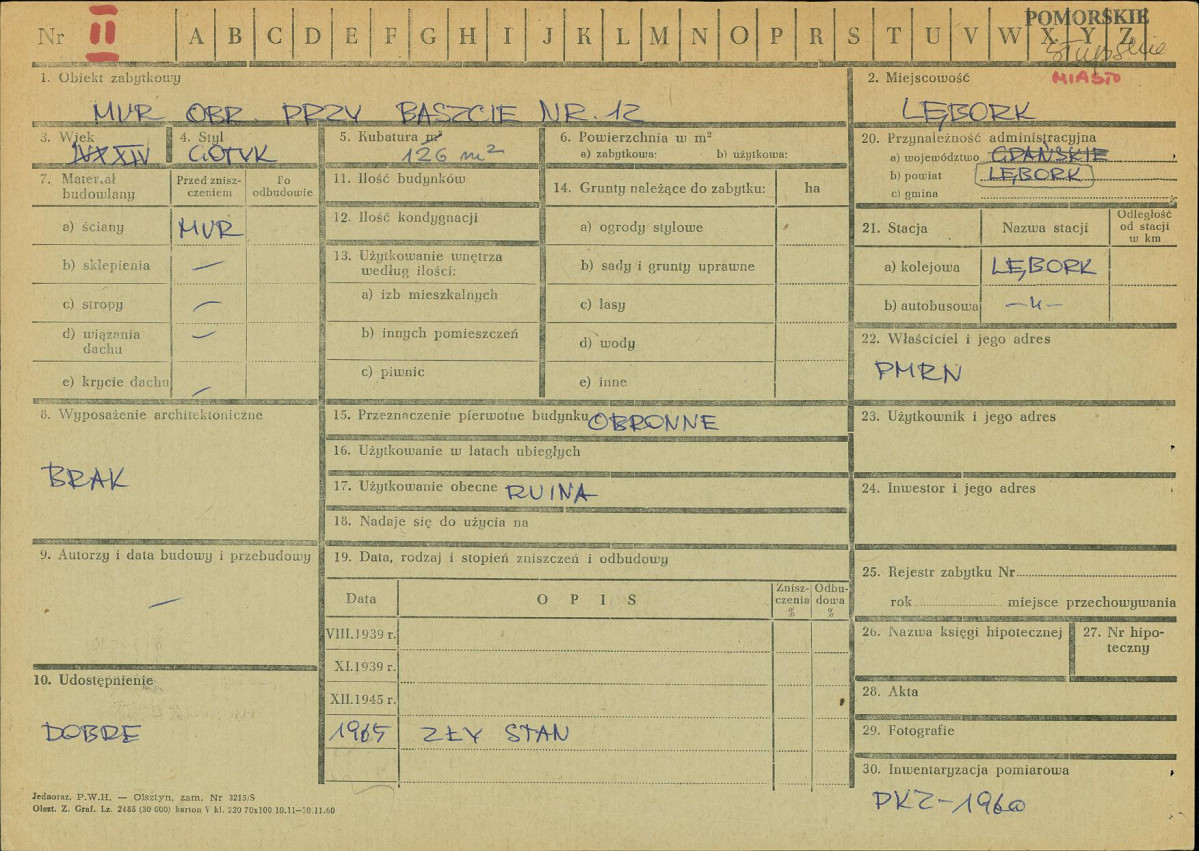 Nr II A B C D E F G H I J K L M N O P R S T U V W X Y Z
POMORSKIE
słupskie
MIASTO
1. Obiekt zabytkowy
MUR OBR. PRZY BASZCIE NR. 12
2. Miejscowość
LĘBORK
3. Wiek
XIV
4. Styl
GOTYK
5. Kubatura m³
126 m²
6. Powierzchnia w m²
a) zabytkowa: b) użytkowa:
20. Przynależność administracyjna
a) województwo GDAŃSKIE
b) powiat LĘBORK
c) gmina
7. Materiał budowlany
Przed zniszczeniem
Po odbudowie
a) ściany MUR
b) sklepienia —
c) stropy —
d) wiązania dachu —
e) krycie dachu —
11. Ilość budynków
12. Ilość kondygnacji
13. Użytkowanie wnętrza
według ilości:
a) izb mieszkalnych
b) innych pomieszczeń
c) piwnic
14. Grunty należące do zabytku: ha
a) ogrody stylowe
b) sady i grunty uprawne
c) lasy
d) wody
e) inne
21. Stacja
Nazwa stacji
Odległość
od stacji
w km
a) kolejowa LĘBORK
b) autobusowa —"—
22. Właściciel i jego adres
PMRN
8. Wyposażenie architektoniczne
BRAK
15. Przeznaczenie pierwotne budynku OBRONNE
16. Użytkowanie w latach ubiegłych
17. Użytkowanie obecne RUINA
18. Nadaje się do użycia na
23. Użytkownik i jego adres
24. Inwestor i jego adres
9. Autorzy i data budowy i przebudowy
—
19. Data, rodzaj i stopień zniszczeń i odbudowy
Data
OPIS
Zniszczenia %
Odbudowa %
VIII.1939 r.
XI.1939 r.
XII.1945 r.
1965 ZŁY STAN
25. Rejestr zabytku Nr
rok miejsce przechowywania
26. Nazwa księgi hipotecznej
27. Nr hipoteczny
10. Udostępnienie
DOBRE
28. Akta
29. Fotografie
30. Inwentaryzacja pomiarowa
PKZ-1960
Jednoraz. P.W.H. — Olsztyn, zam. Nr 3215/S
Olszt. Z. Graf. Lz. 2485 (30 000) karton V kl. 220 70x100 10.11—30.11.60